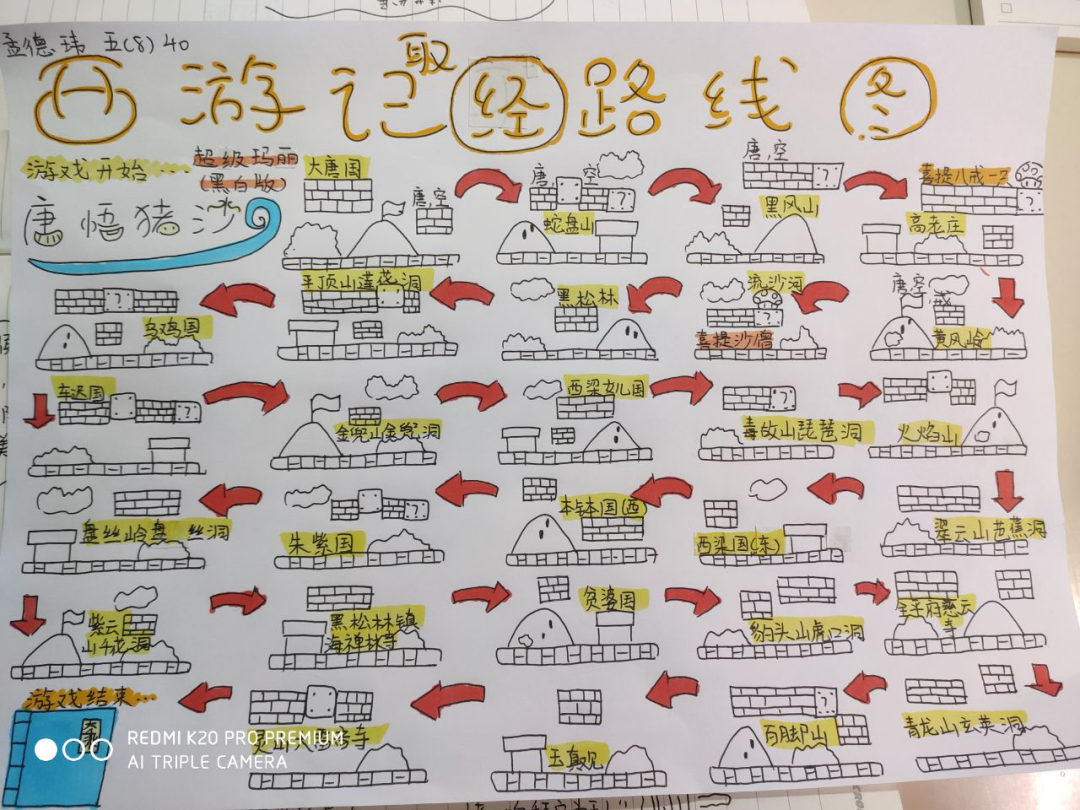 孟德玮 五(8) 40
西游记取经路线图
游戏开始…
超级玛丽
(黑白版)
唐 悟 猪 沙
大唐国
唐.空
唐 空
?
蛇盘山
唐.空
?
黑风山
喜提八戒一只
?
高老庄
唐.空.戒
黄风岭
流沙河
?
喜提沙僧
黑松林
平顶山莲花洞
?
?
乌鸡国
车迟国
?
金兜山金兜洞
西梁女儿国
?
毒敌山琵琶洞
?
火焰山
翠云山芭蕉洞
西梁国(东)
本钵国(西)
?
朱紫国
盘丝岭盘丝洞
紫云
山千花洞
黑松林镇
海禅林寺
贫婆国
豹头山虎口洞
玉华府慈云
寺
青龙山玄英洞
?
百脚山
玉真观
游戏结束…
REDMI K20 PRO PREMIUM
AI TRIPLE CAMERA